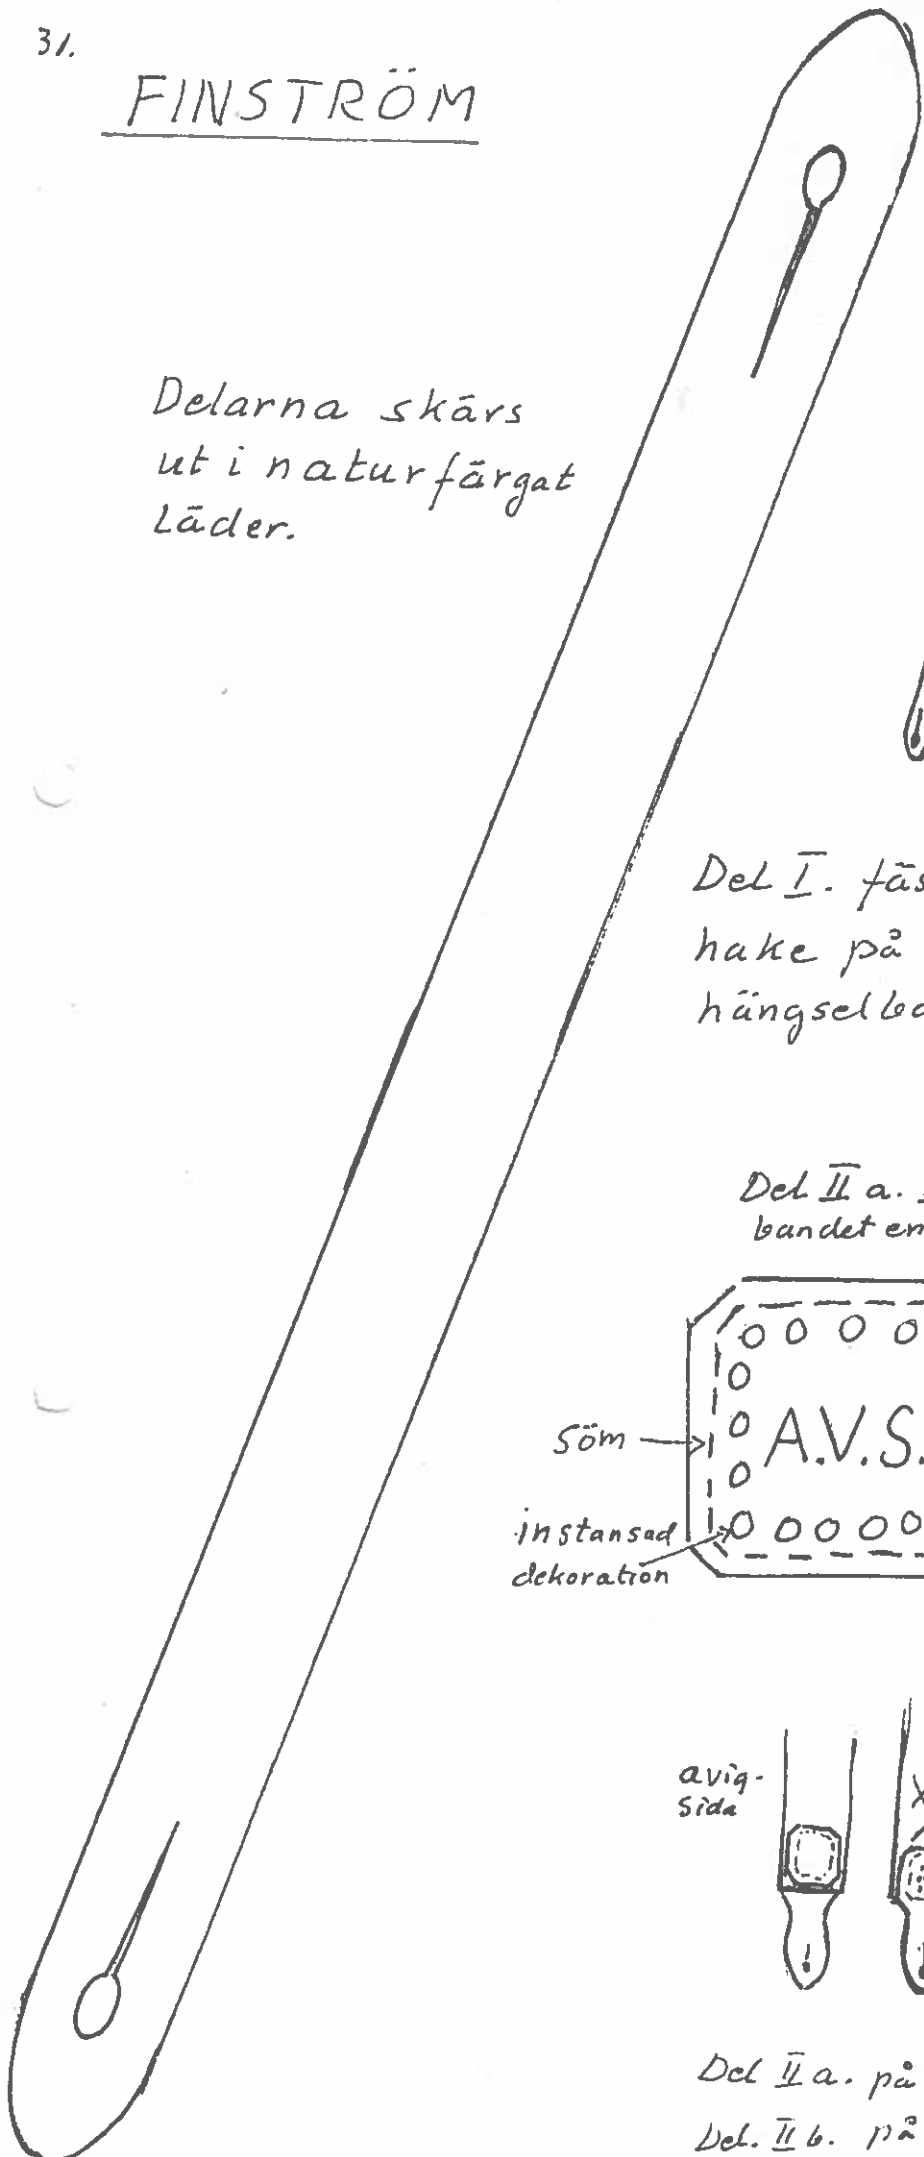 31.
FINSTRÖM
Delarna skärs
ut i naturfärgat
Läder.
Del I. fäs
hake på
hängselba
Del II a.
bandet en
söm
A.V.S.
instansad
dekoration
avig-
sida
Del II a. på
Del. II b. på